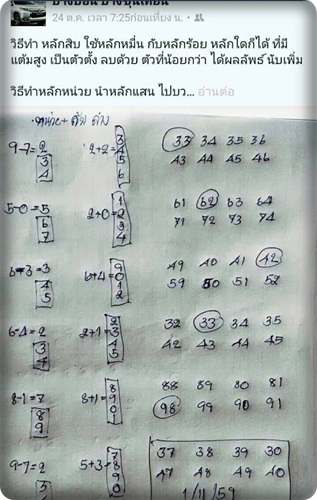 24 ต.ค. เวลา 7:25ก่อนเที่ยง น. ·
วิธีทำ หลักสิบ ใช้หลักหมื่น กับหลักร้อย หลักใดก็ได้ ที่มี
แต้มสูง เป็นตัวตั้ง ลบด้วย ตัวที่น้อยกว่า ได้ผลลัพธ์ นับเพิ่ม
วิธีทำหลักหน่วย นำหลักแสน ไปบว... อ่านต่อ
9-7=2 3 4
2+2= 3 4 5 6
33 34 35 36
43 44 45 46
5-0=5 6 7
2+0= 1 2 3 4
61 62 63 64
71 72 73 74
6-3=3 4 5
6+4= 9 0 1 2
49 40 41 42
59 50 51 52
6-4=2 3 4
2+1= 2 3 4 5
32 33 34 35
42 43 44 45
8-1=7 8 9
8+1= 8 9 0 1
88 89 80 81
98 99 90 91
9-7=2 3
5+3= 7 8 9 0
37 38 39 30
47 48 49 40
1/11/59